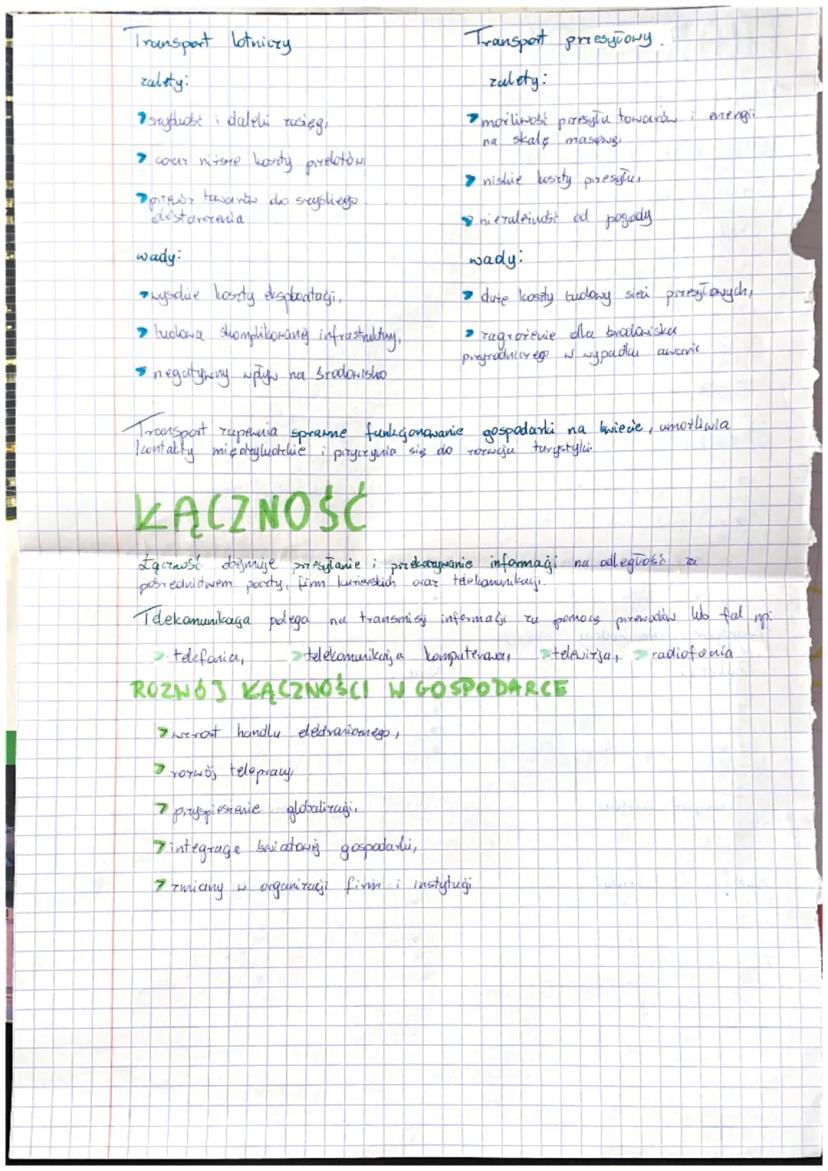 Transport lotniczy
zalety:
szybkość i daleki zasięg,
coraz niższe koszty przelotów
przewóz towarów do szybkiego
dostarczenia
wady:
wysokie koszty eksploatacji,
budowa skomplikowanej infrastruktury,
negatywny wpływ na środowisko
Transport przesyłowy.
zalety:
możliwość przesyłu towarów i energii
na skalę masową,
niskie koszty przesyłu,
niezależność od pogody
wady:
duże koszty budowy sieci przesyłowych,
zagrożenie dla środowiska
przyrodniczego w wypadku awarii
Transport zapewnia sprawne funkcjonowanie gospodarki na świecie, umożliwia
kontakty międzyludzkie i przyczynia się do rozwoju turystyki.
ŁĄCZNOŚĆ
Łączność obejmuje przesyłanie i przekazywanie informacji na odległość za
pośrednictwem poczty, firm kurierskich oraz telekomunikacji.
Telekomunikacja polega na transmisji informacji za pomocą przewodów lub fal np:
telefonia, telekomunikacja komputerowa, telewizja, radiofonia
ROZWÓJ ŁĄCZNOŚCI W GOSPODARCE
wzrost handlu elektronicznego,
rozwój telepracy,
przyspieszenie globalizacji,
integrację światowej gospodarki,
zmiany w organizacji firm i instytucji